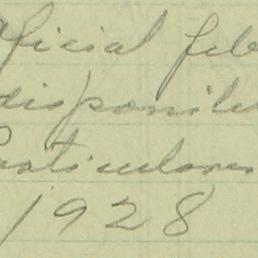 oficial feb
disponib
Particulares
1928